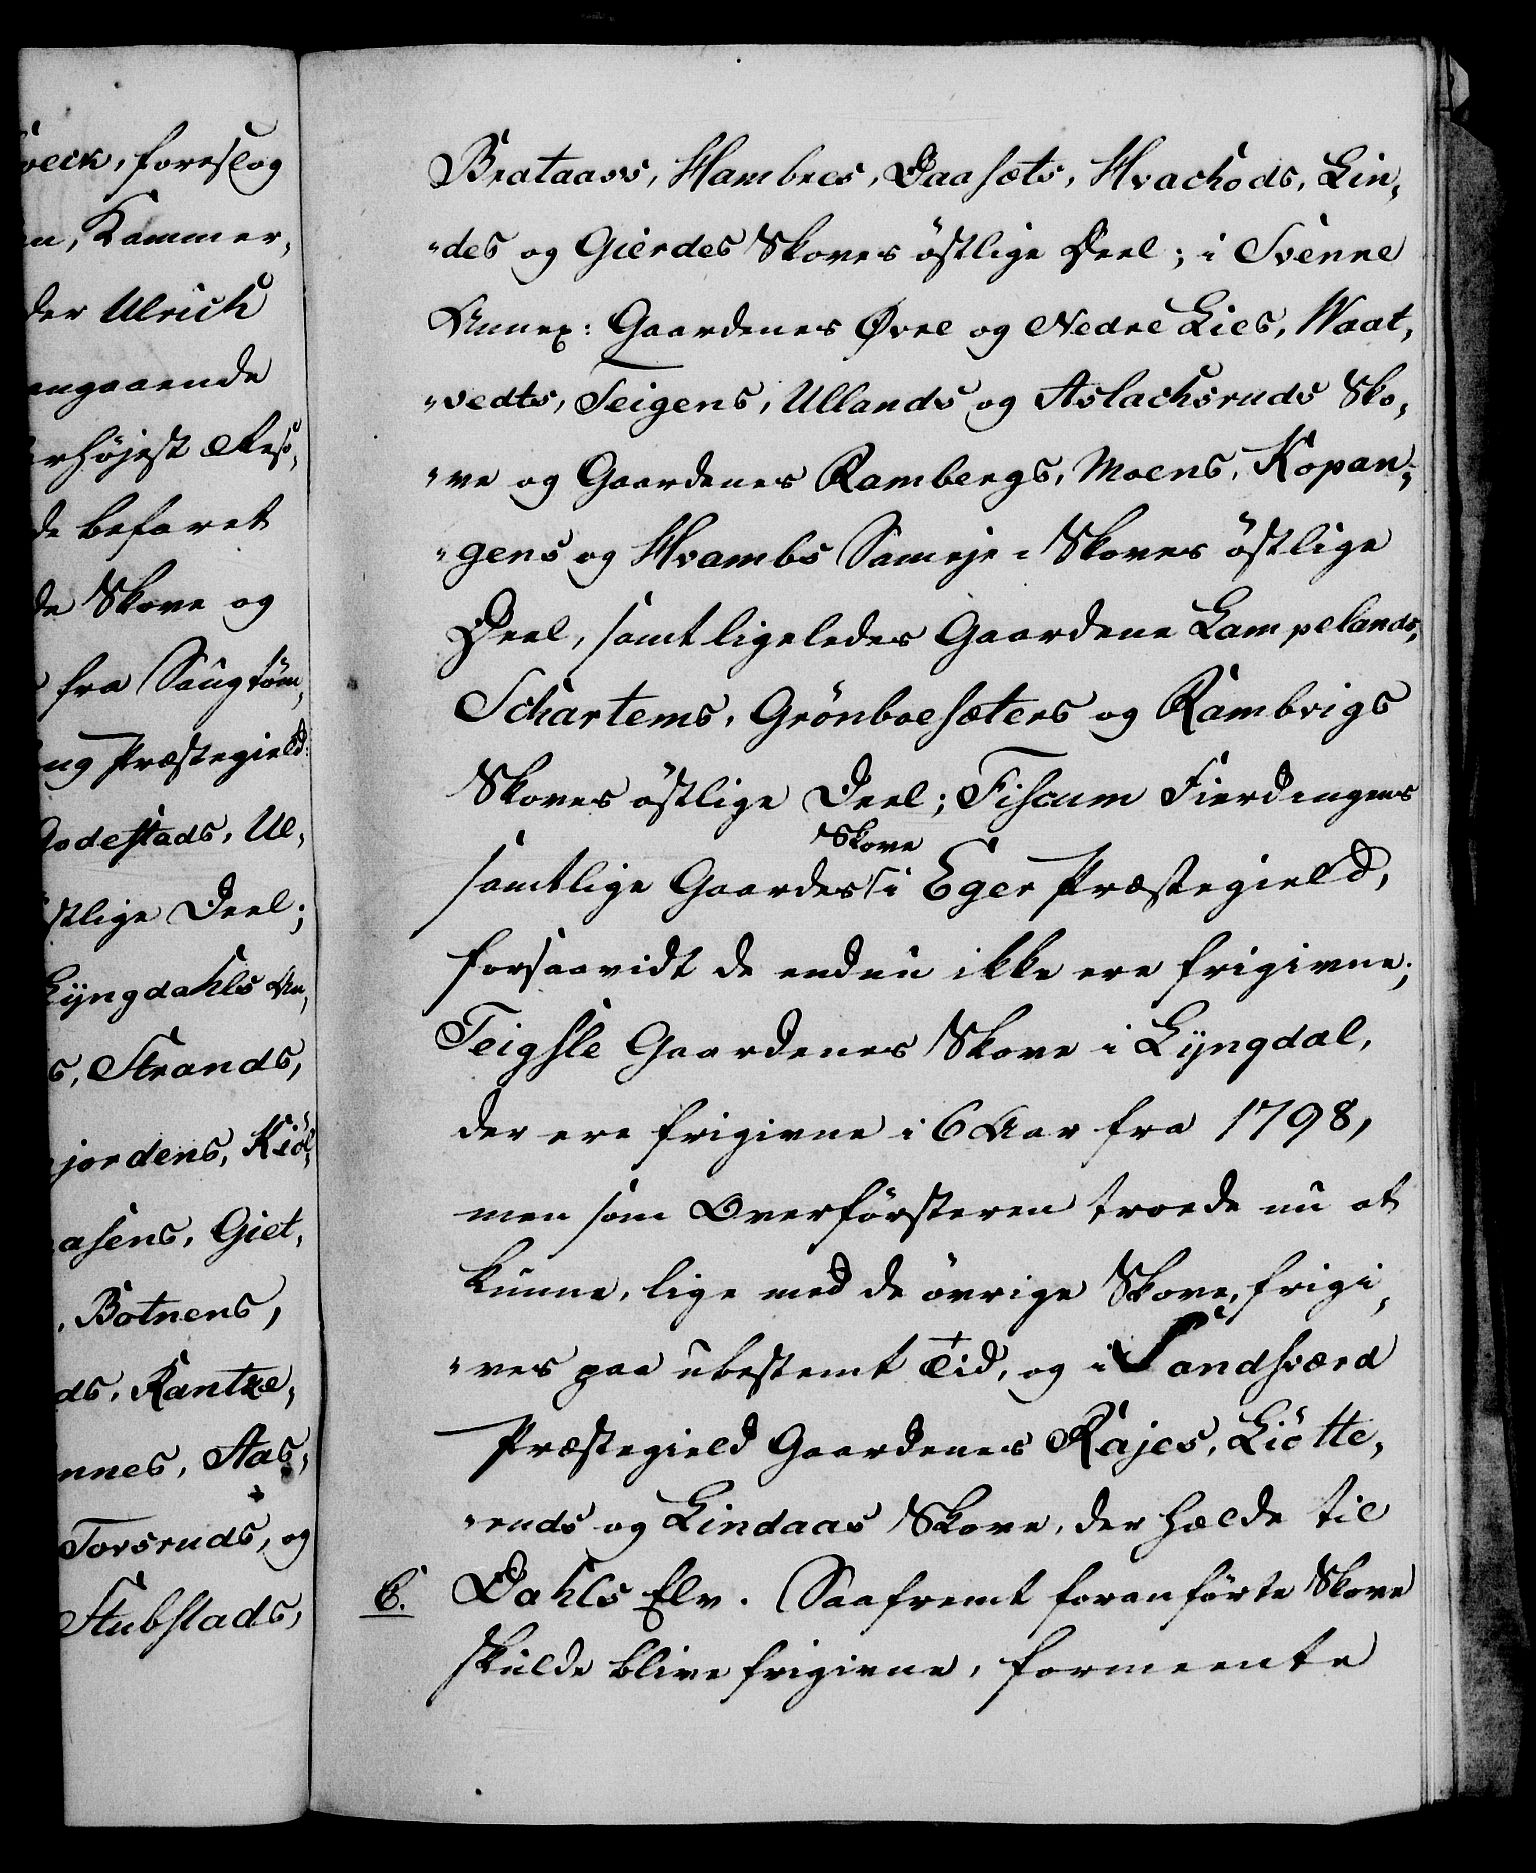 veck, foreslog
en, Kammer,
der Ulrich
angaaende
erhøjest Reso,
de befaret
de Skove og
fra Saugtöm,
ng Præstegield
Rodestads, Ul,
stlige Deel;
Lÿngdahls An,
s, Strands,
jordens, Kiöl,
asens, Giet,
, Botnens,
ds, Rantze,
nnes, Aas,
Torsruds, og
Stubstads,
Brataass, Hambres, Daasæts, Hvachods, Lin,
"des og Gierdes Skoves östlige Deel; i Svenne
Annex: Gaardenes Øvre og Nedre Lies, Waat,
"vedts, Teigens, Ullands og Aslachsruds Sko,
"ve og Gaardenes Rambergs, Moens, Kopan,
"gens og Hvambs Sameje-Skoves östlige
Deel, samt ligeledes Gaardene Lampelands,
Schartems, Grönboesæters og Rambvigs
Skoves östlige Deel; Fiscum Fierdingens
samtlige Gaardes Skove i Eger Præstegield,
forsaavidt de endnu ikke ere frigivne;
Teigsle Gaardenes Skove i Lÿngdal,
der ere frigivne i 6 Aar fra 1798,
men som Overförsteren troede nu at
kunne, lige med de övrige Skove, frigi,
"ves paa ubestemt Tid, og i Sandsværd
Præstegield Gaardenes Rajes, Liötte,
"ruds og Lindaas Skove, der hælde til
6. Dahls Elv. Saafremt foranförte Skove
skulde blive frigivne, formeente